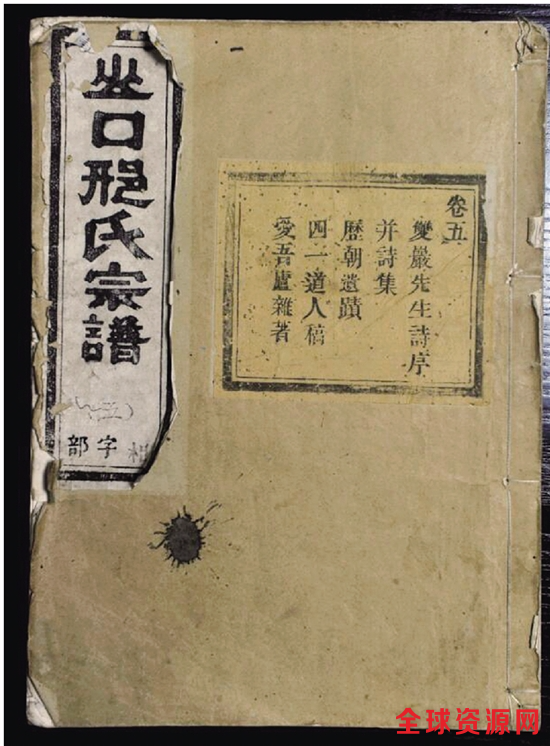 卷五
巖先生詩序
并詩集
歷朝遺蹟
四一道人稿
愛吾廬雜著
口邢氏宗譜
(五)
字部
全球资源网